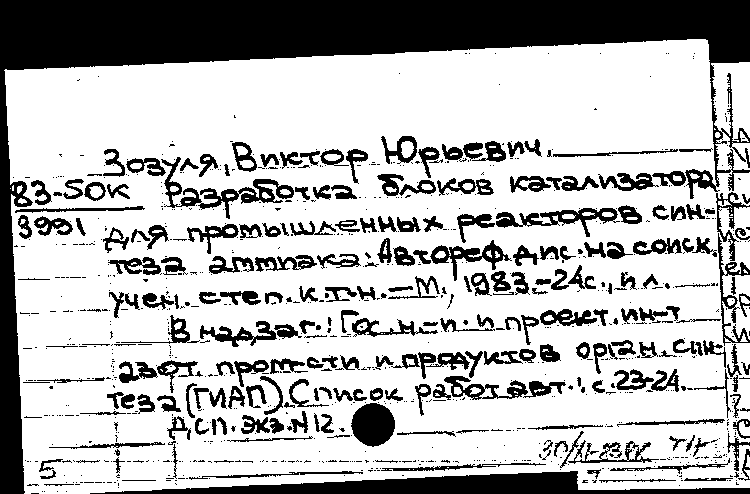 Зозуля, Виктор Юрьевич.
83-5ОК Разработка блоков катализатора
3991 для промышленных реакторов син-
теза аммиака: Автореф. дис. на соиск.
учен. степ. к.т.н. — М., 1983. - 24с., ил.
В надзаг.: Гос. н.-и. и проект. ин-т
азот. пром-сти и продуктов орган. син-
теза (ГИАП). Список работ авт.: с. 23-24.
Дсп. Экз. N12.
5